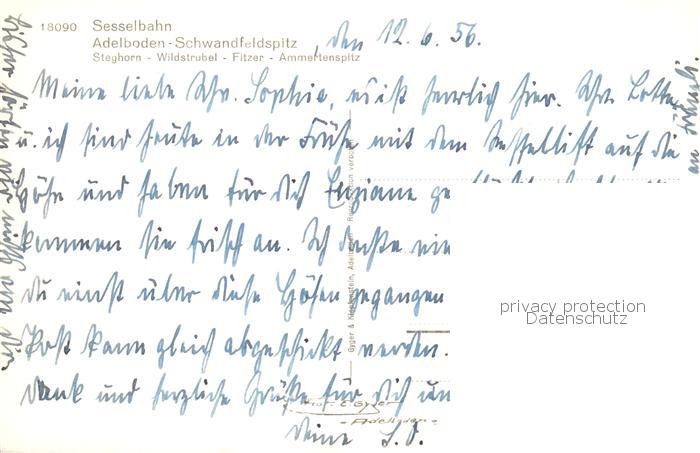 18090 Sesselbahn
Adelboden-Schwandfeldspitz
Steghorn - Wildstrubel - Fitzer - Ammertenspitz
, den 12. 6. 56.
Meine liebe Schw. Sophie, es ist herrlich hier. Schw. Lotte
u. ich sind heute in der Frühe mit dem Sessellift auf die
Höhe und haben für Dich Enziane ge
kommen sie frisch an. Ich dachte wie
Du einst über diese Höhen gegangen
Post kann gleich abgeschickt werden.
dank und herzliche Grüße für Dich un
Deine L. S.
Gyger & Klopfenstein, Adelboden - Reproduktion verboten
E. Gyger
- Adelboden -
privacy protection
Datenschutz